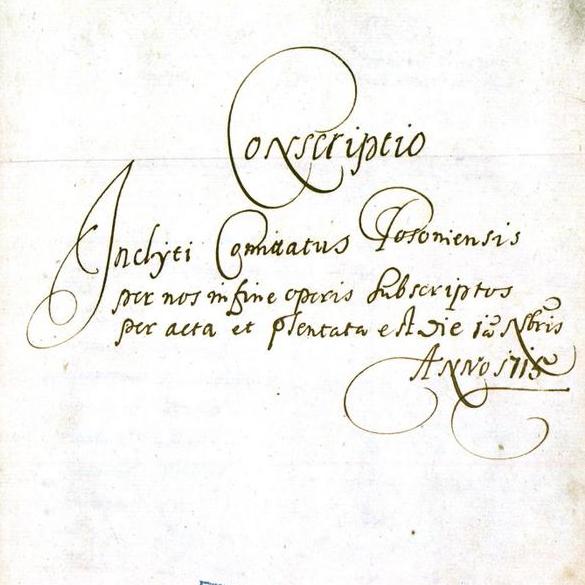 Conscriptio
Inclyti Comitatus Posoniensis
per nos in fine operis subscriptos
per acta et pſentata est die Nbris
Anno 1715